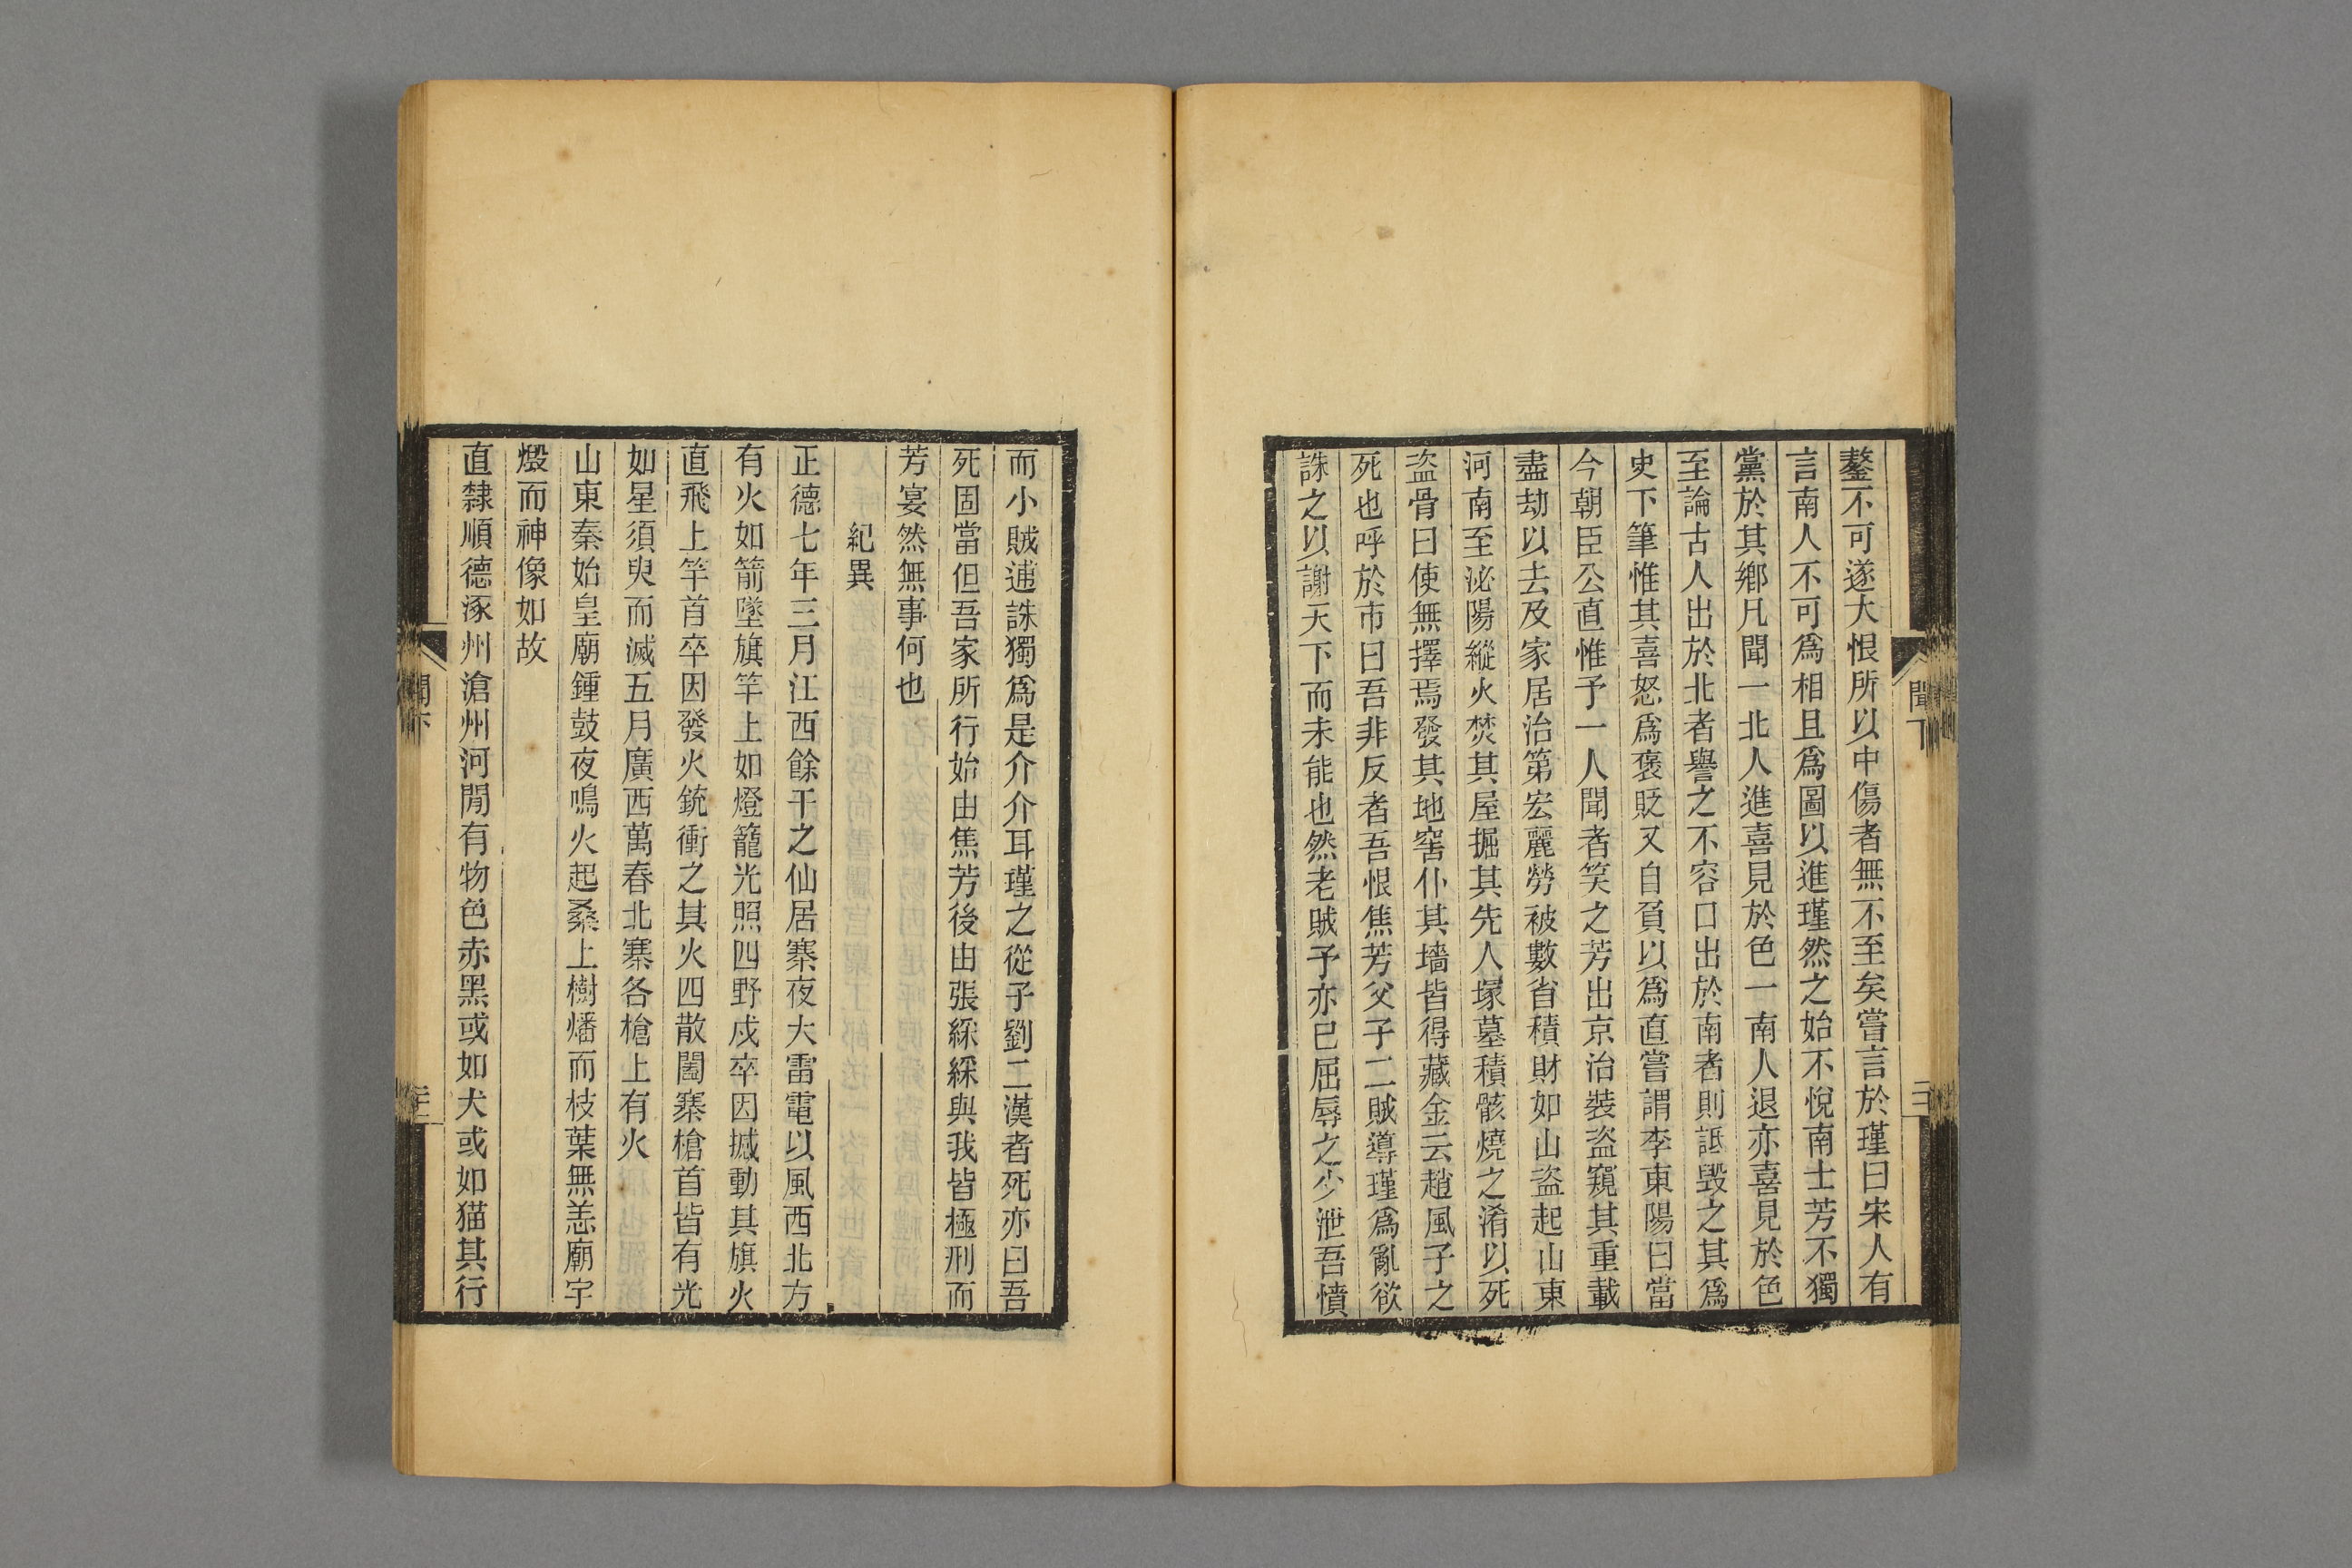 鏊不可遂大恨所以中傷者無不至矣嘗言於瑾曰宋人有
言南人不可爲相且爲圖以進瑾然之始不悅南士芳不獨
黨於其鄉凡聞一北人進喜見於色一南人退亦喜見於色
至論古人出於北者譽之不容口出於南者則詆毀之其爲
史下筆惟其喜怒爲褒貶又自負以爲直嘗謂李東陽曰當
今朝臣公直惟予一人聞者笑之芳出京治裝盜窺其重載
盡劫以去及家居治第宏麗勞被數省積財如山盜起山東
河南至泌陽縱火焚其屋掘其先人塚墓積骸燒之淆以死
盜骨曰使無擇焉發其地窖仆其墻皆得藏金云趙風子之
死也呼於市曰吾非反者吾恨焦芳父子二賊導瑾爲亂欲
誅之以謝天下而未能也然老賊予亦已屈辱之少泄吾憤
聞下
而小賊逋誅獨爲是介介耳瑾之從子劉二漢者死亦曰吾
死固當但吾家所行始由焦芳後由張綵綵與我皆極刑而
芳宴然無事何也
紀異
正德七年三月江西餘干之仙居寨夜大雷電以風西北方
有火如箭墜旗竿上如燈籠光照四野戍卒因撼動其旗火
直飛上竿首卒因發火銃衝之其火四散闔寨槍首皆有光
如星須臾而滅五月廣西萬春北寨各槍上有火
山東秦始皇廟鍾鼓夜鳴火起桑上樹燔而枝葉無恙廟宇
燬而神像如故
直隸順德涿州滄州河間有物色赤黑或如犬或如猫其行
聞下